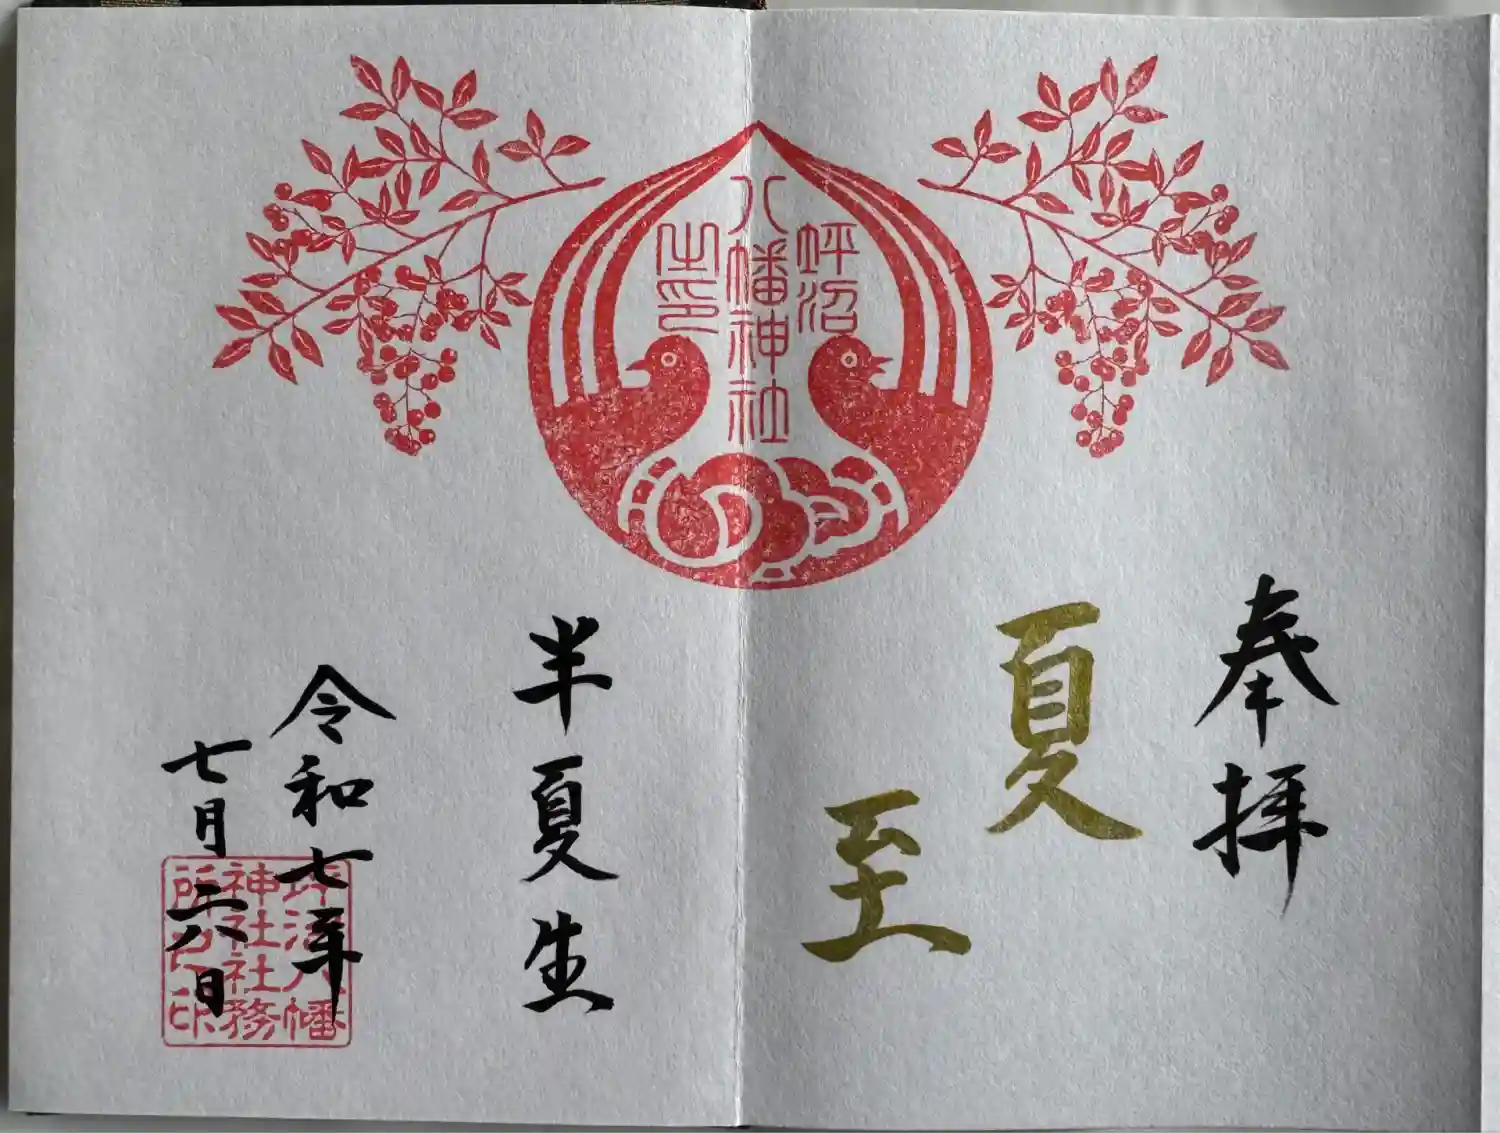 奉拝
夏至
坪沼
八幡神社
之印
半夏生
令和七年
七月六日
坪沼八幡
神社社務
所之印